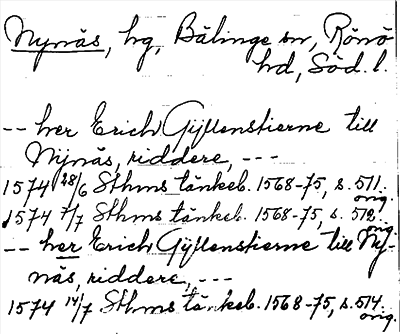 Nynäs, hg, Bälinge sn, Rönö
hd, Söd. l.
-- her Erich Gyllenstierne till
Nijnäs, riddere, ---
1574 28/6 Sthms tänkeb. 1568-75, s. 511.
orig.
1574 7/7 Sthms tänkeb. 1568-75, s. 512.
orig.
-- her Erich Gyllenstierne till Nij-
näs, riddere, ---
1574 14/7 Sthms tänkeb. 1568-75, s. 514.
orig.